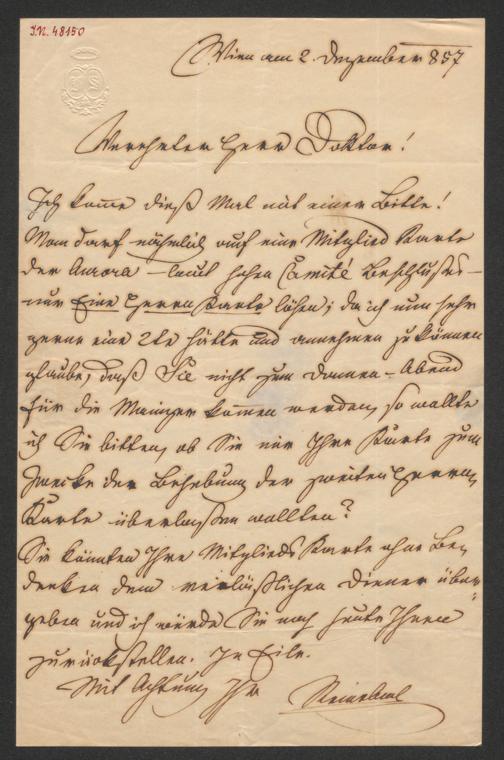 I.N. 48150
Wien am 2. Dezember 857
Verehrter Herr Doktor!
Ich komme dieß Mal mit einer Bitte!
Man darf nähmlich auf eine Mitglied Karte
der Aurora – laut hohen Comité Beschlußes –
nur Eine Herrn Karte lösen; da ich nun sehr
gerne eine 2te hätte und annehmen zu können
glaube, daß Sie nicht zum Damen-Abend
für die Mainzer kommen werden, so wollte
ich Sie bitten, ob Sie mir Ihre Karte zum
Zwecke der Behebung der zweiten Herrn
Karte überlaßen wollten?
Sie könnten Ihre Mitglieds Karte ohne Be-
denken dem verläßlichen Diener über-
geben und ich würde Sie noch heute Ihnen
zurückstellen. In Eile.
Mit Achtung Ihr